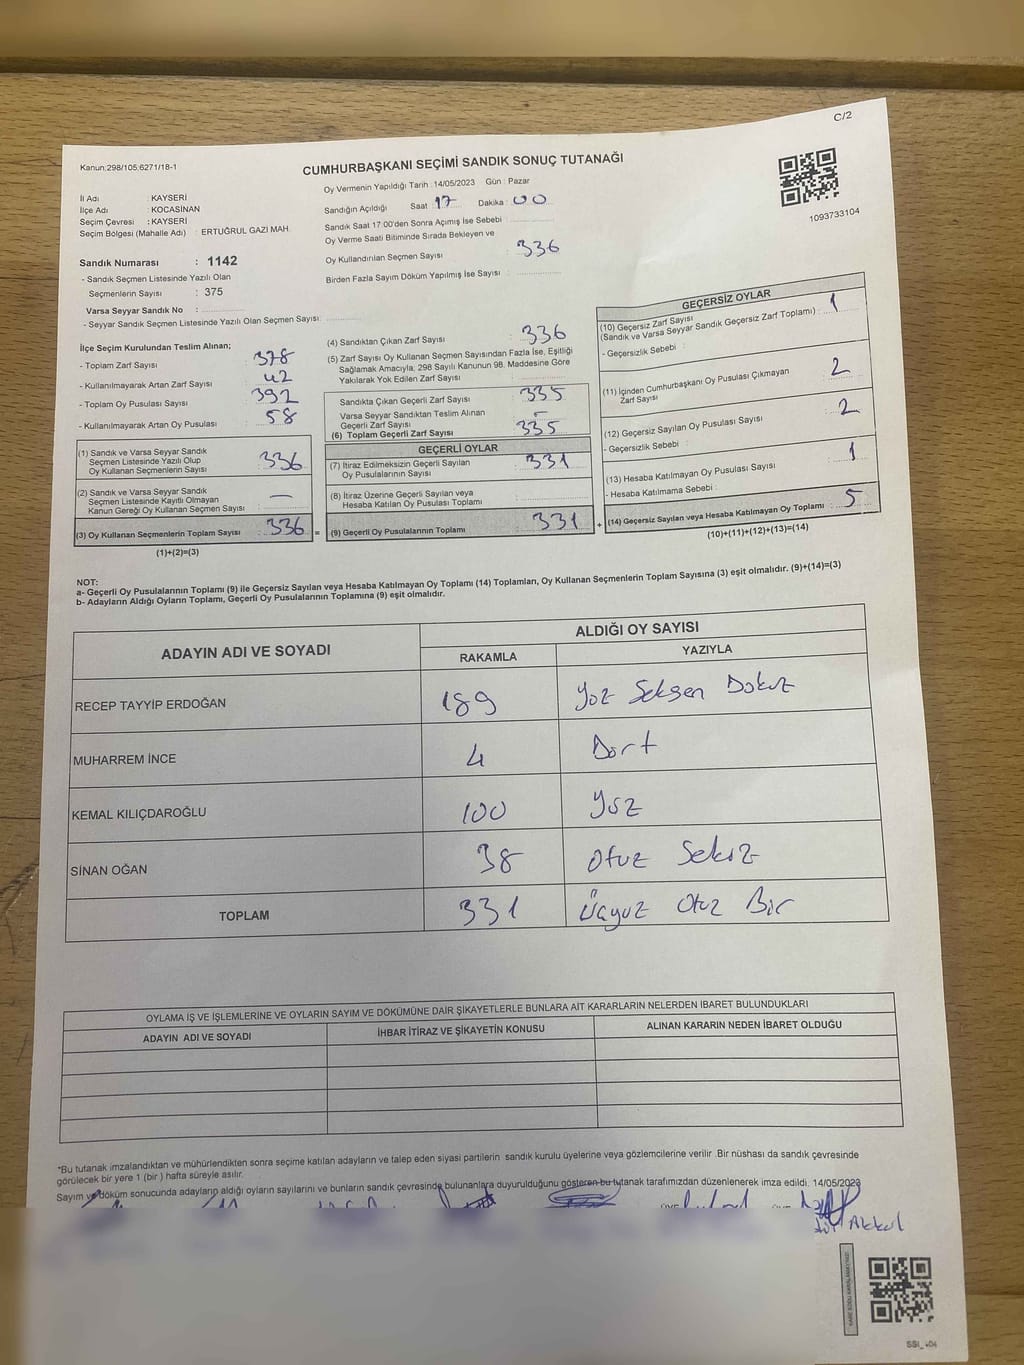 C/2
Kanun:298/105;6271/18-1
CUMHURBAŞKANI SEÇİMİ SANDIK SONUÇ TUTANAĞI
1093733104
İl Adı : KAYSERİ
İlçe Adı : KOCASİNAN
Seçim Çevresi : KAYSERİ
Seçim Bölgesi (Mahalle Adı) : ERTUĞRUL GAZİ MAH.
Sandık Numarası : 1142
- Sandık Seçmen Listesinde Yazılı Olan
Seçmenlerin Sayısı : 375
Varsa Seyyar Sandık No :
- Seyyar Sandık Seçmen Listesinde Yazılı Olan Seçmen Sayısı:
İlçe Seçim Kurulundan Teslim Alınan;
- Toplam Zarf Sayısı : 378
- Kullanılmayarak Artan Zarf Sayısı : 42
- Toplam Oy Pusulası Sayısı : 392
- Kullanılmayarak Artan Oy Pusulası : 58
(1) Sandık ve Varsa Seyyar Sandık
Seçmen Listesinde Yazılı Olup
Oy Kullanan Seçmenlerin Sayısı : 336
(2) Sandık ve Varsa Seyyar Sandık
Seçmen Listesinde Kayıtlı Olmayan
Kanun Gereği Oy Kullanan Seçmen Sayısı : —
(3) Oy Kullanan Seçmenlerin Toplam Sayısı : 336 =
(1)+(2)=(3)
Oy Vermenin Yapıldığı Tarih : 14/05/2023 Gün : Pazar
Sandığın Açıldığı Saat : 17 Dakika : 00
Sandık Saat 17:00'den Sonra Açımış İse Sebebi :
Oy Verme Saati Bitiminde Sırada Bekleyen ve
Oy Kullandırılan Seçmen Sayısı : 336
Birden Fazla Sayım Döküm Yapılmış İse Sayısı :
(4) Sandıktan Çıkan Zarf Sayısı : 336
(5) Zarf Sayısı Oy Kullanan Seçmen Sayısından Fazla İse, Eşitliği
Sağlamak Amacıyla; 298 Sayılı Kanunun 98. Maddesine Göre
Yakılarak Yok Edilen Zarf Sayısı :
Sandıkta Çıkan Geçerli Zarf Sayısı : 335
Varsa Seyyar Sandıktan Teslim Alınan
Geçerli Zarf Sayısı : -
(6) Toplam Geçerli Zarf Sayısı : 335
GEÇERLİ OYLAR
(7) İtiraz Edilmeksizin Geçerli Sayılan
Oy Pusulasının Sayısı : 331
(8) İtiraz Üzerine Geçerli Sayılan veya
Hesaba Katılan Oy Pusulası Toplamı :
(9) Geçerli Oy Pusulalarının Toplamı : 331 +
GEÇERSİZ OYLAR
(10) Geçersiz Zarf Sayısı
(Sandık ve Varsa Seyyar Sandık Geçersiz Zarf Toplamı) : 1
- Geçersizlik Sebebi :
(11) İçinden Cumhurbaşkanı Oy Pusulası Çıkmayan
Zarf Sayısı : 2
(12) Geçersiz Sayılan Oy Pusulası Sayısı : 2
- Geçersizlik Sebebi :
(13) Hesaba Katılmayan Oy Pusulası Sayısı : 1
- Hesaba Katılmama Sebebi :
(14) Geçersiz Sayılan veya Hesaba Katılmayan Oy Toplamı : 5
(10)+(11)+(12)+(13)=(14)
NOT:
a- Geçerli Oy Pusulalarının Toplamı (9) ile Geçersiz Sayılan veya Hesaba Katılmayan Oy Toplamı (14) Toplamları, Oy Kullanan Seçmenlerin Toplam Sayısına (3) eşit olmalıdır. (9)+(14)=(3)
b- Adayların Aldığı Oyların Toplamı, Geçerli Oy Pusulalarının Toplamına (9) eşit olmalıdır.
ADAYIN ADI VE SOYADI ALDIĞI OY SAYISI
RAKAMLA YAZIYLA
RECEP TAYYİP ERDOĞAN 189 Yüz Seksen Dokuz
MUHARREM İNCE 4 Dört
KEMAL KILIÇDAROĞLU 100 Yüz
SİNAN OĞAN 38 Otuz Sekiz
TOPLAM 331 Üçyüz Otuz Bir
OYLAMA İŞ VE İŞLEMLERİNE VE OYLARIN SAYIM VE DÖKÜMÜNE DAİR ŞİKAYETLERLE BUNLARA AİT KARARLARIN NELERDEN İBARET BULUNDUKLARI
ADAYIN ADI VE SOYADI İHBAR İTİRAZ VE ŞİKAYETİN KONUSU ALINAN KARARIN NEDEN İBARET OLDUĞU
*Bu tutanak imzalandıktan ve mühürlendikten sonra seçime katılan adayların ve talep eden siyasi partilerin sandık kurulu üyelerine veya gözlemcilerine verilir. Bir nüshası da sandık çevresinde
görülecek bir yere 1 (bir ) hafta süreyle asılır.
Sayım ve döküm sonucunda adayların aldığı oyların sayılarını ve bunların sandık çevresinde bulunanlara duyurulduğunu gösteren bu tutanak tarafımızdan düzenlenerek imza edildi. 14/05/2023
Akkul